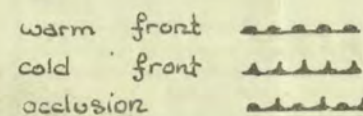 warm front
cold front
occlusion